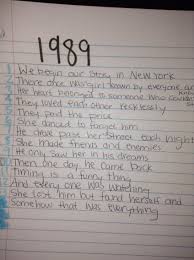 1989
1 We begin our story in New York
2 There once was girl known by everyone and
3 Her heart belonged to someone who couldn't
4 They loved each other recklessly
5 They paid the price
6 She danced to forget him
7 He drove past her street each night
8 She made friends and enemies
9 He only saw her in his dreams
10 Then one day he came back
11 Timing is a funny thing
12 And everyone was watching
13 She lost him but found herself and
somehow that was everything